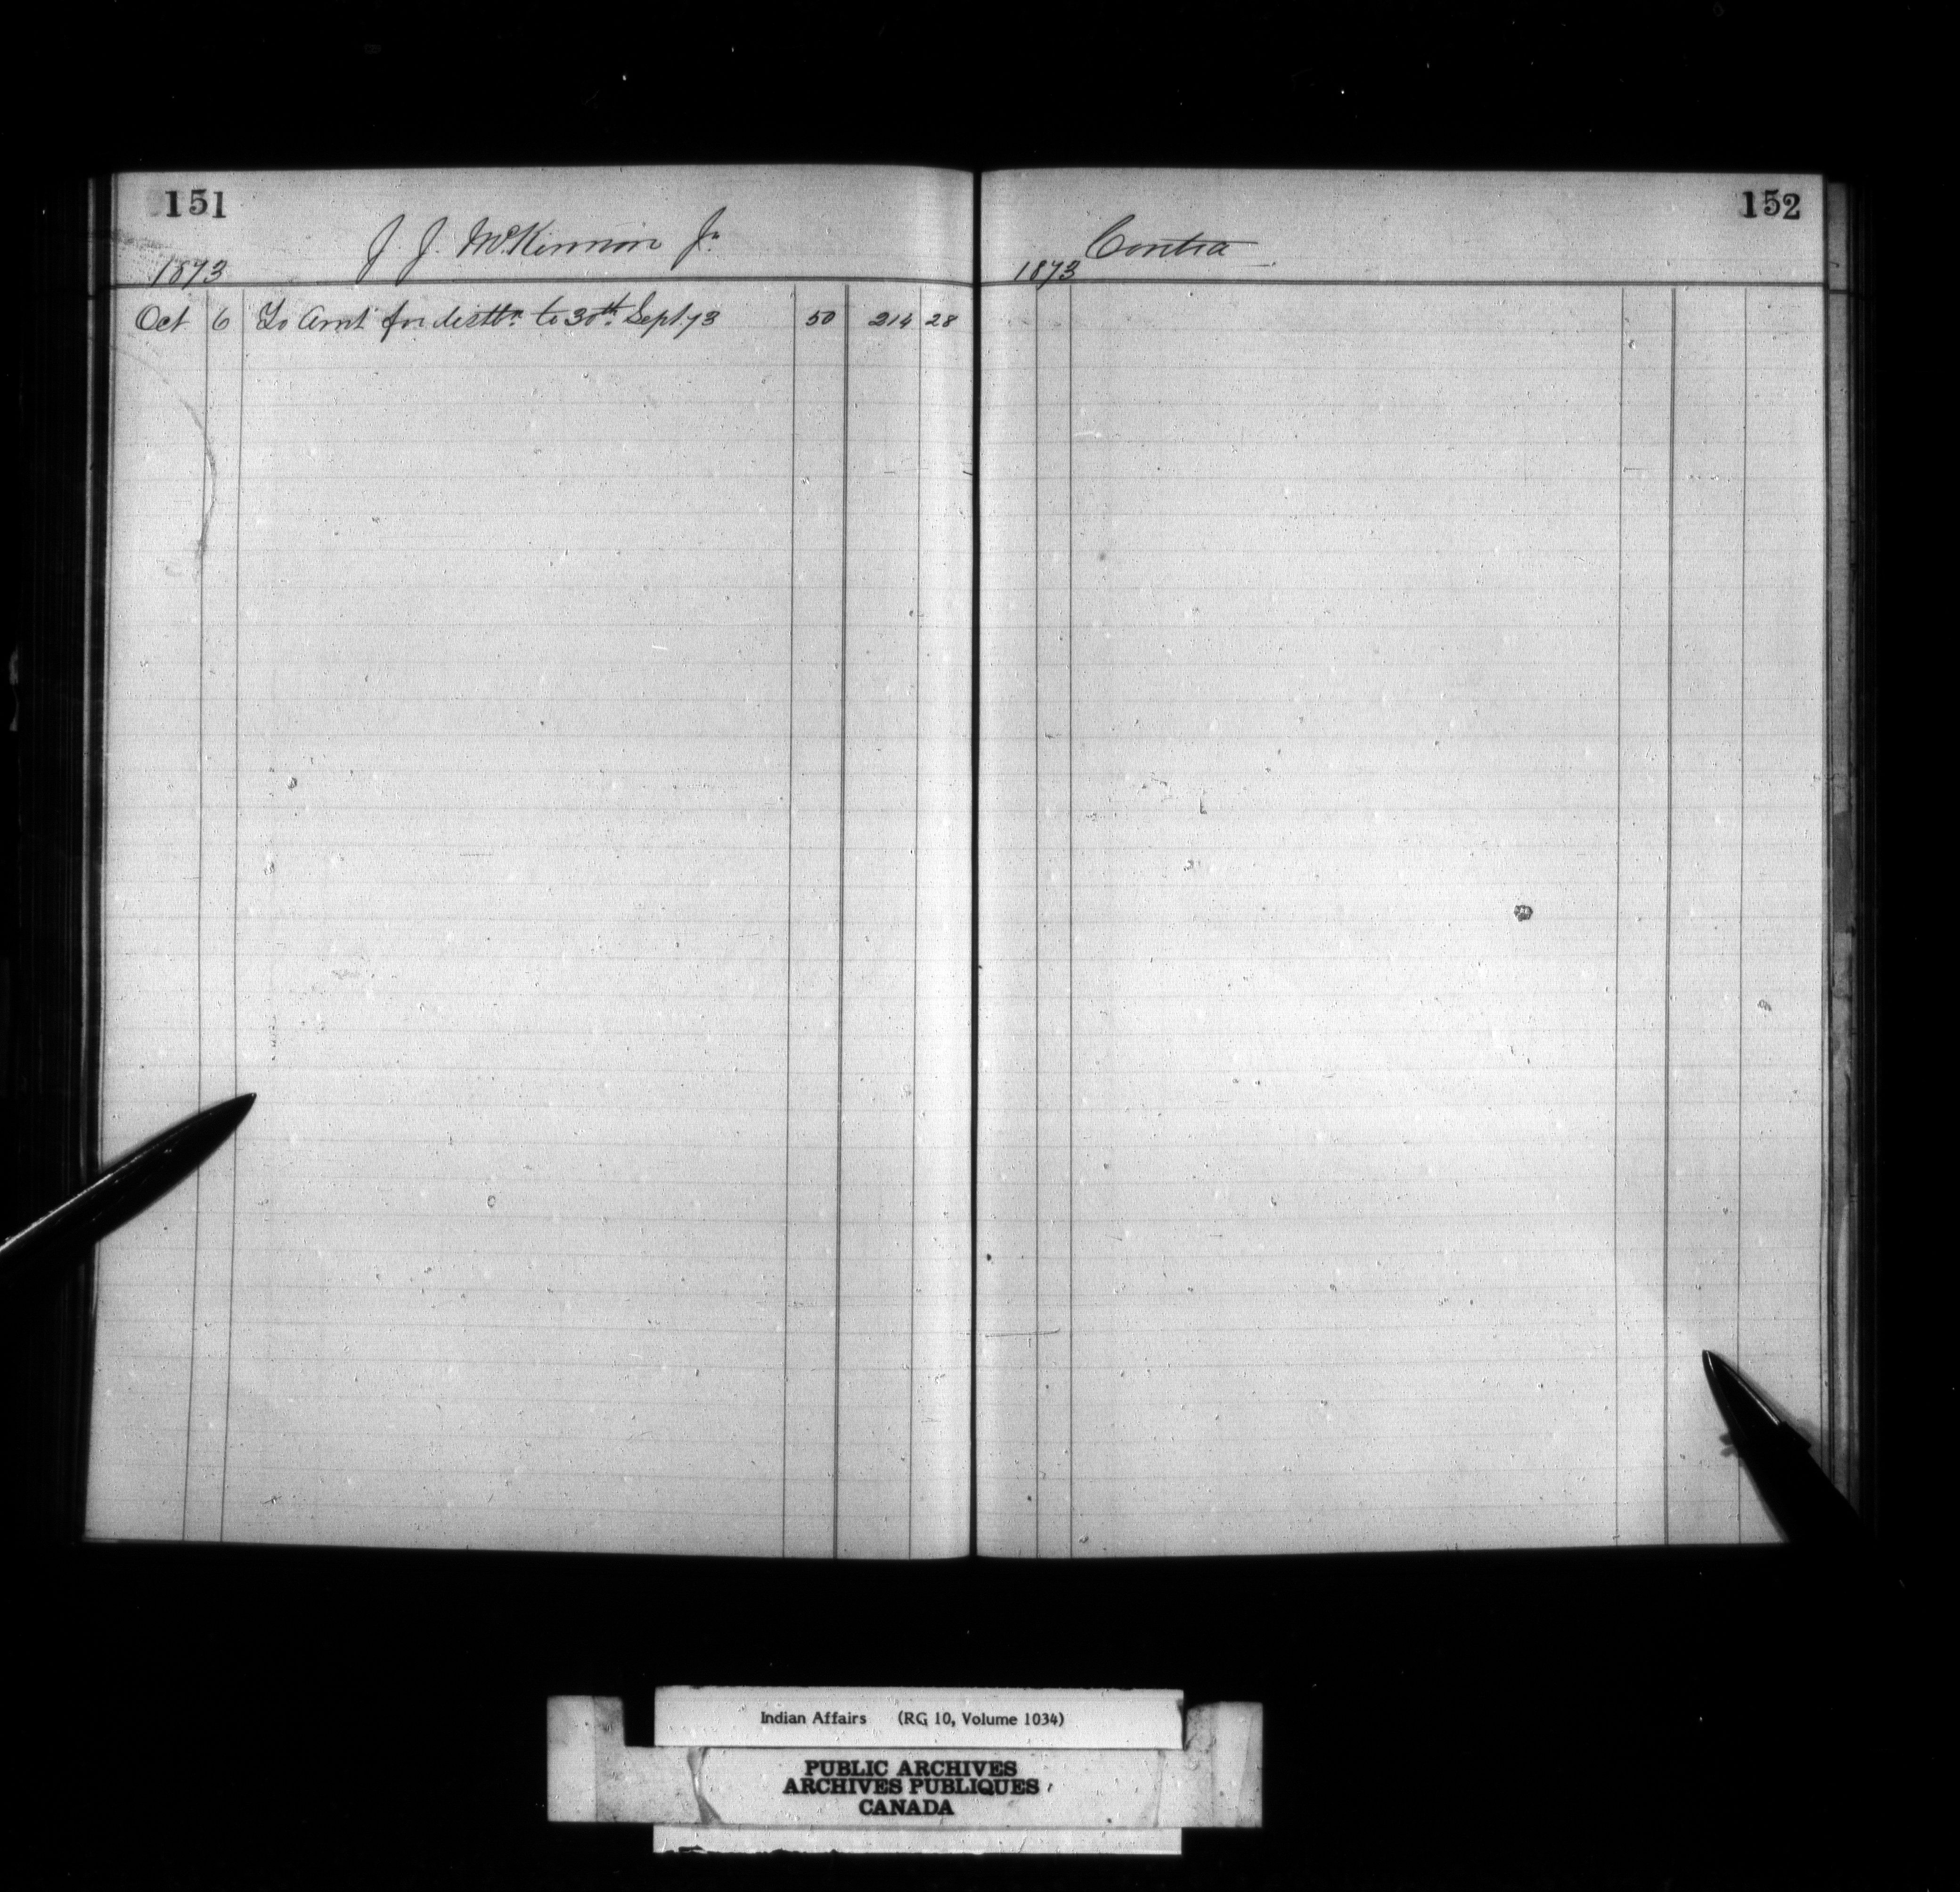 151
J. J. McKinnon Jr.
1873
Oct 6 To Amt for distbn. to 30th. Sept 73 50 214 28
152
Contra
1873
Indian Affairs (RG 10, Volume 1034)
PUBLIC ARCHIVES
ARCHIVES PUBLIQUES
CANADA